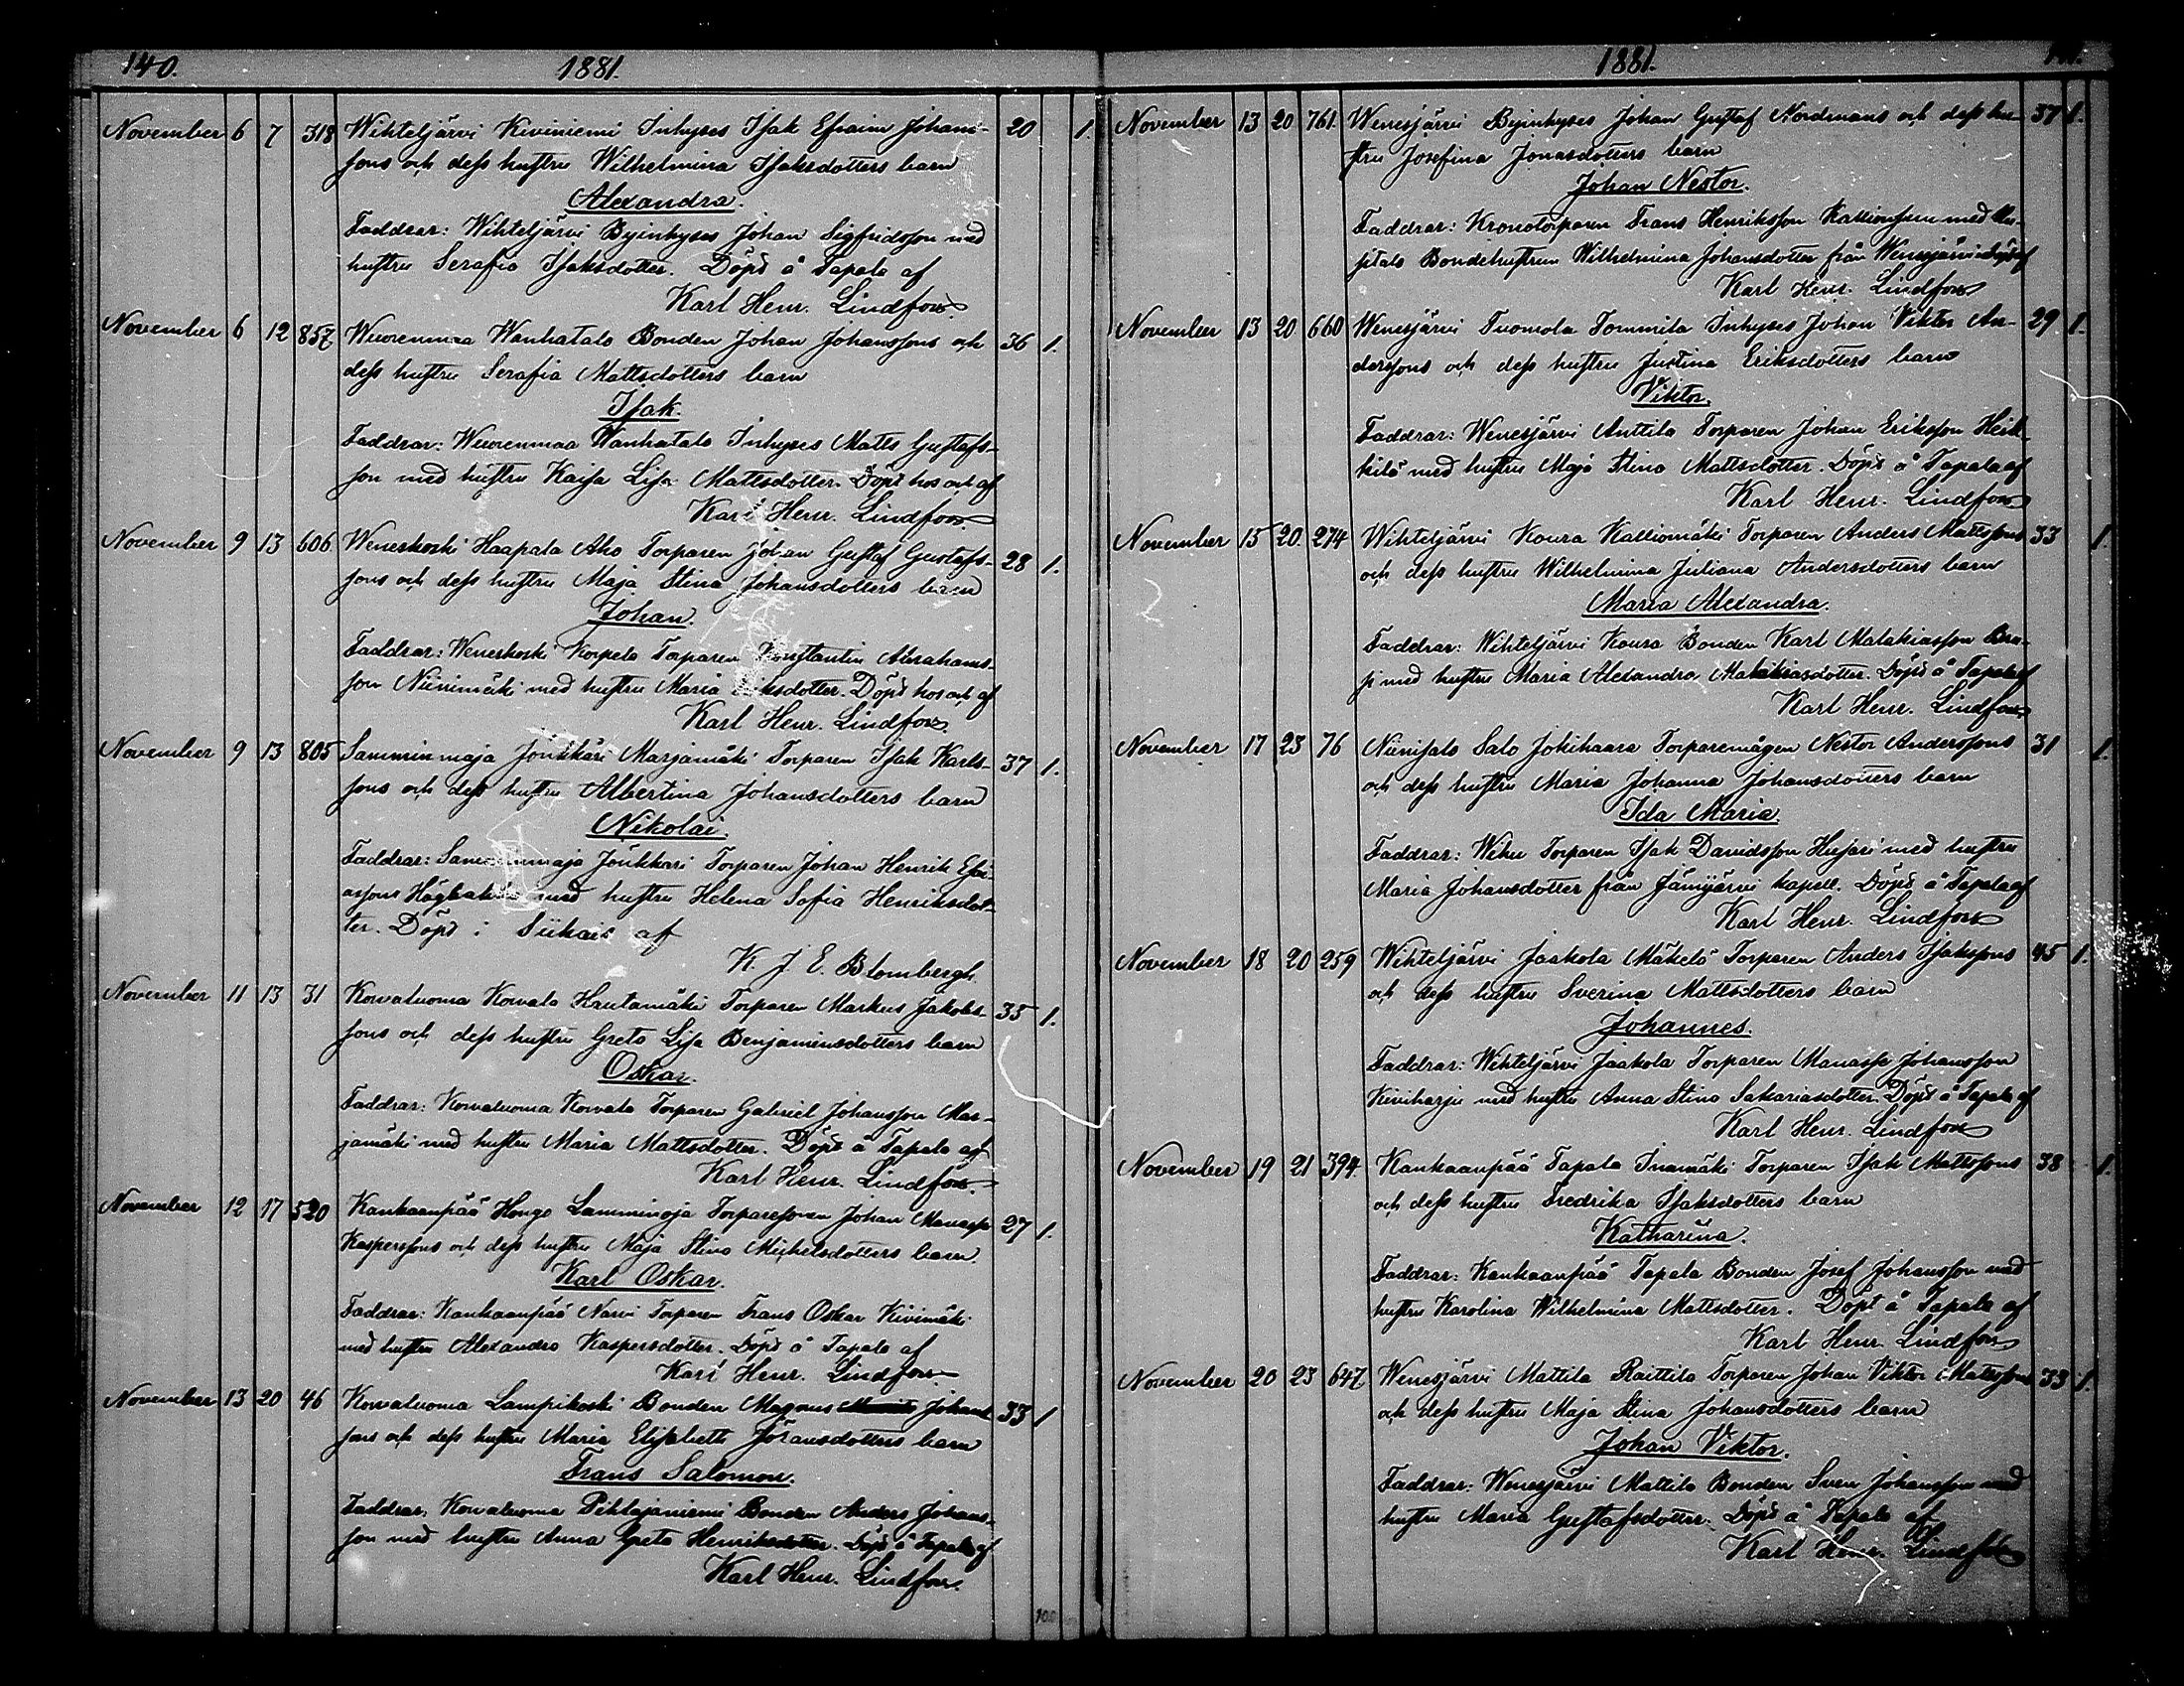 140. 1881.
November 6 7 318 Wihteljärvi Kiviniemi Inhyses Isak Efraim Johans- 20 1.
sons och dess hustru Wilhelmina Isaksdotters barn
Alexandra.
Faddrar: Wihteljärvi Byinhyses Johan Sigfridsson med
hustru Serafia Isaksdotter. Döpt å Tapala af
Karl Henr. Lindfors.
November 6 12 857 Wuorenmaa Wanhatalo Bonden Johan Johanssons och 36 1.
dess hustru Serafia Mattsdotters barn
Isak.
Faddrar: Wuorenmaa Wanhatalo Inhyses Matts Gustafs-
son med hustru Kaisa Lisa Mattsdotter. Döpt hos och af
Karl Henr. Lindfors
November 9 13 606 Weneskoski Haapala Aho Torparen Johan Gustaf Gustafs- 28 1.
sons och dess hustru Maja Stina Johansdotters barn
Johan.
Faddrar: Weneskoski Korpela Torparen Konstantin Abrahams-
son Niinimäki med hustru Maria Eriksdotter. Döpt hos och af
Karl Henr. Lindfors.
November 9 13 805 Samminmaja Joukkari Marjamäki Torparen Isak Karls- 37 1.
sons och dess hustru Albertina Johansdotters barn
Nikolai.
Faddrar: Samminmaja Joukkari Torparen Johan Henrik Esai-
assons Högbacka med hustru Helena Sofia Henriksdot-
ter. Döpt i Siikais af
K. J. E. Blombergh.
November 11 13 31 Kowaluoma Kowala Hautamäki Torparen Markus Jakobs- 35 1.
sons och dess hustru Greta Lisa Benjaminsdotters barn
Oskar.
Faddrar: Kowaluoma Kowala Torparen Gabriel Johansson Mar-
jamäki med hustru Maria Mattsdotter. Döpt å Tapala af
Karl Henr. Lindfors.
November 12 17 520 Kankaanpää Hongo Lamminoja Torparesonen Johan Manasse 27 1.
Kasperssons och dess hustru Maja Stina Michelsdotters barn
Karl Oskar.
Faddrar: Kankaanpää Narvi Torparen Frans Oskar Kivimäki
med hustru Alexandra Kaspersdotter. Döpt å Tapala af
Karl Henr. Lindfors
November 13 20 46 Kowaluoma Lampikoski Bonden Magnus Johans- 33 1
sons och dess hustru Maria Elisabeth Göransdotters barn
Frans Salomon.
Faddrar. Kowaluoma Pihlajaniemi Bonden Anders Johans-
son med hustru Anna Greta Henriksdotter. Döpt å Tapala af
Karl Henr. Lindfors.
1881.
November 13 20 761 Wenesjärvi Byinhyses Johan Gustaf Nordmans och dess hu- 37 1.
stru Josefina Jonasdotters barn
Johan Nestor.
Faddrar: Kronotorparen Frans Henriksson med
Bondehustrun Wilhelmina Johansdotter från Wenesjärvi
Karl Henr. Lindfors
November 13 20 660 Wenesjärvi Tuomola Tommila Inhyses Johan Viktor An- 29 1.
derssons och dess hustru Justina Eriksdotters barn
Viktor.
Faddrar: Wenesjärvi Anttila Torparen Johan Eriksson Heik-
kilä med hustru Maja Stina Mattsdotter. Döpt å Tapala af
Karl Henr. Lindfors
November 15 20 274 Wihteljärvi Koura Kalliomäki Torparen Anders Mattssons 33 1.
och dess hustru Wilhelmina Juliana Andersdotters barn
Maria Alexandra.
Faddrar: Wihteljärvi Koura Bonden Karl Malakiasson Bra-
si med hustru Maria Alexandra Malakiasdotter. Döpt å Tapala af
Karl Henr. Lindfors
November 17 23 76 Niinisalo Salo Jokihaara Torparemågen Nestor Anderssons 31 1.
och dess hustru Maria Johanna Johansdotters barn
Ida Maria.
Faddrar: Wihu Torparen Isak Davidsson Husari med hustru
Maria Johansdotter från Jämijärvi kapell. Döpt å Tapala af
Karl Henr. Lindfors
November 18 20 259 Wihteljärvi Jaakola Mäkelä Torparen Anders Isakssons 45 1.
och dess hustru Sverina Mattsdotters barn
Johannes.
Faddrar: Wihteljärvi Jaakola Torparen Manasse Johansson
Kiviharju med hustru Anna Stina Sakariasdotter. Döpt å Tapala af
Karl Henr. Lindfors
November 19 21 394 Kankaanpää Tapala Inamäki Torparen Isak Mattssons 38 1.
och dess hustru Fredrika Isaksdotters barn
Katharina.
Faddrar: Kankaanpää Tapala Bonden Josef Johansson med
hustru Karolina Wilhelmina Mattsdotter. Döpt å Tapala af
Karl Henr. Lindfors
November 20 23 647 Wenesjärvi Mattila Raittila Torparen Johan Viktor Mattssons 33 1.
och dess hustru Maja Stina Johansdotters barn
Johan Viktor.
Faddrar: Wenesjärvi Mattila Bonden Sven Johansson med
hustru Maria Gustafsdotter. Döpt å Tapala af
Karl Henr. Lindfors